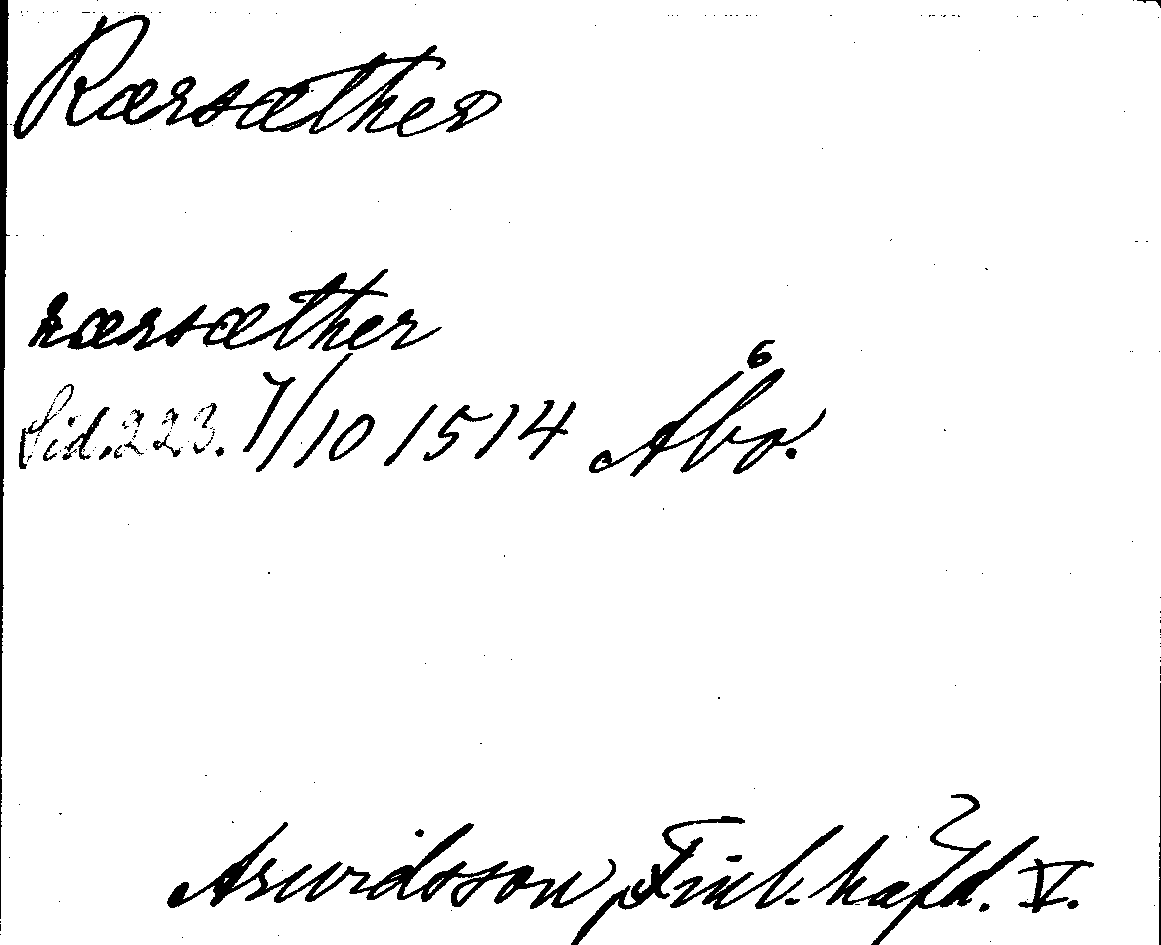 Rærsæther
rærsæther
Sid. 223. 7/10 1514 Åbo.
Arwidsson, Finl. häfd. V.